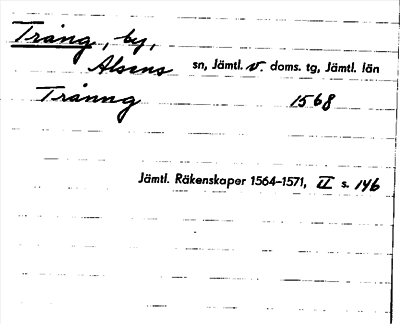 Trång, by,
Alsens sn, Jämtl. v. doms. tg, Jämtl. län
Trånng 1568
Jämtl. Räkenskaper 1564–1571, II s. 146